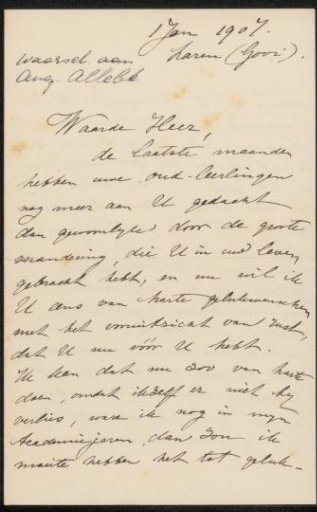 1 Jan 1907.
Laren (Gooi).
waarsch. aan
Aug. Allebé
Waarde Heer,
de laatste maanden
hebben uwe oud-leerlingen
nog meer aan U gedacht
dan gewoonlijk door de groote
verandering, die U in uw leven
gebracht hebt, en nu wil ik
U eens van harte gelukwenschen
met het vooruitzicht van rust,
dat U nu vóór U hebt.
Ik kan dat nu zoo van harte
doen, omdat ikzelf er niet bij
verlies, ware ik nog in mijn
Academiejaren, dan zou ik
moeite hebben het tot geluk-